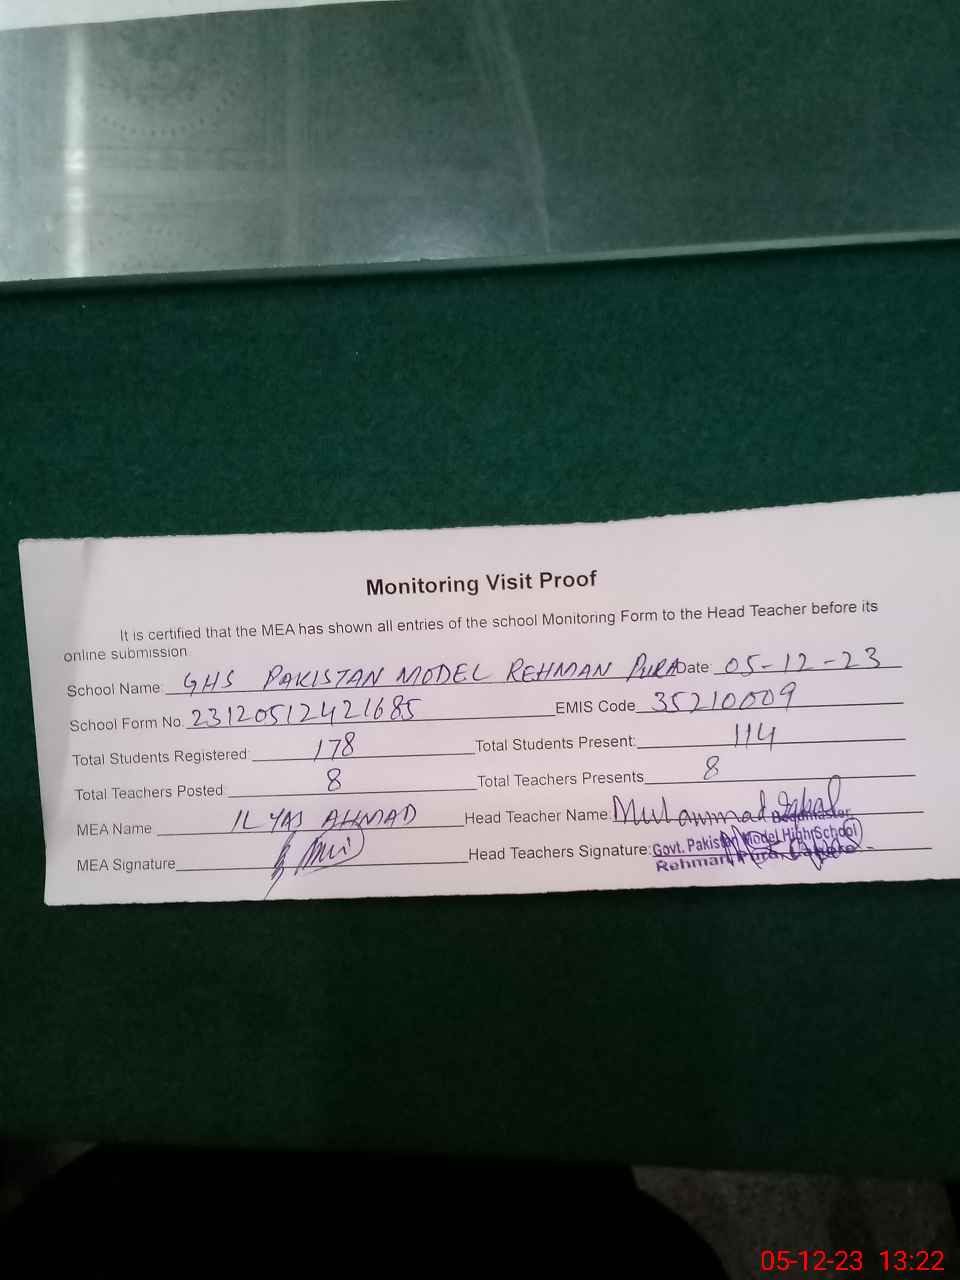 Monitoring Visit Proof
It is certified that the MEA has shown all entries of the school Monitoring Form to the Head Teacher before its
online submission
School Name: GHS PAKISTAN MODEL REHMAN PURA Date: 05-12-23
School Form No. 23120512421685 EMIS Code 35210009
Total Students Registered: 178 Total Students Present: 114
Total Teachers Posted: 8 Total Teachers Presents 8
MEA Name ILYAS AHMAD Head Teacher Name: Muhammad Iqbal
Headmaster
MEA Signature Head Teachers Signature: Govt. Pakistan Model High School
Rehman Pura, Lahore.
05-12-23 13:22